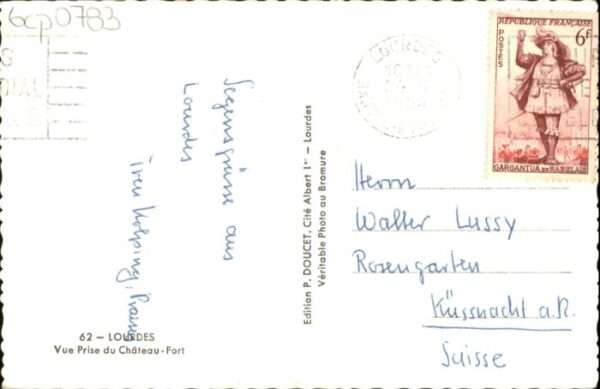 6cp0783
Segensgrüsse aus
Lourdes
Treu Kolping,
62 — LOURDES
Vue Prise du Château-Fort
Edition P. DOUCET, Cité Albert 1er — Lourdes
Véritable Photo au Bromure
LOURDES
RÉPUBLIQUE FRANÇAISE
6f
POSTES
GARGANTUA DE RABELAIS
Herrn
Walter Lussy
Rosengarten
Küssnacht a.R.
Suisse